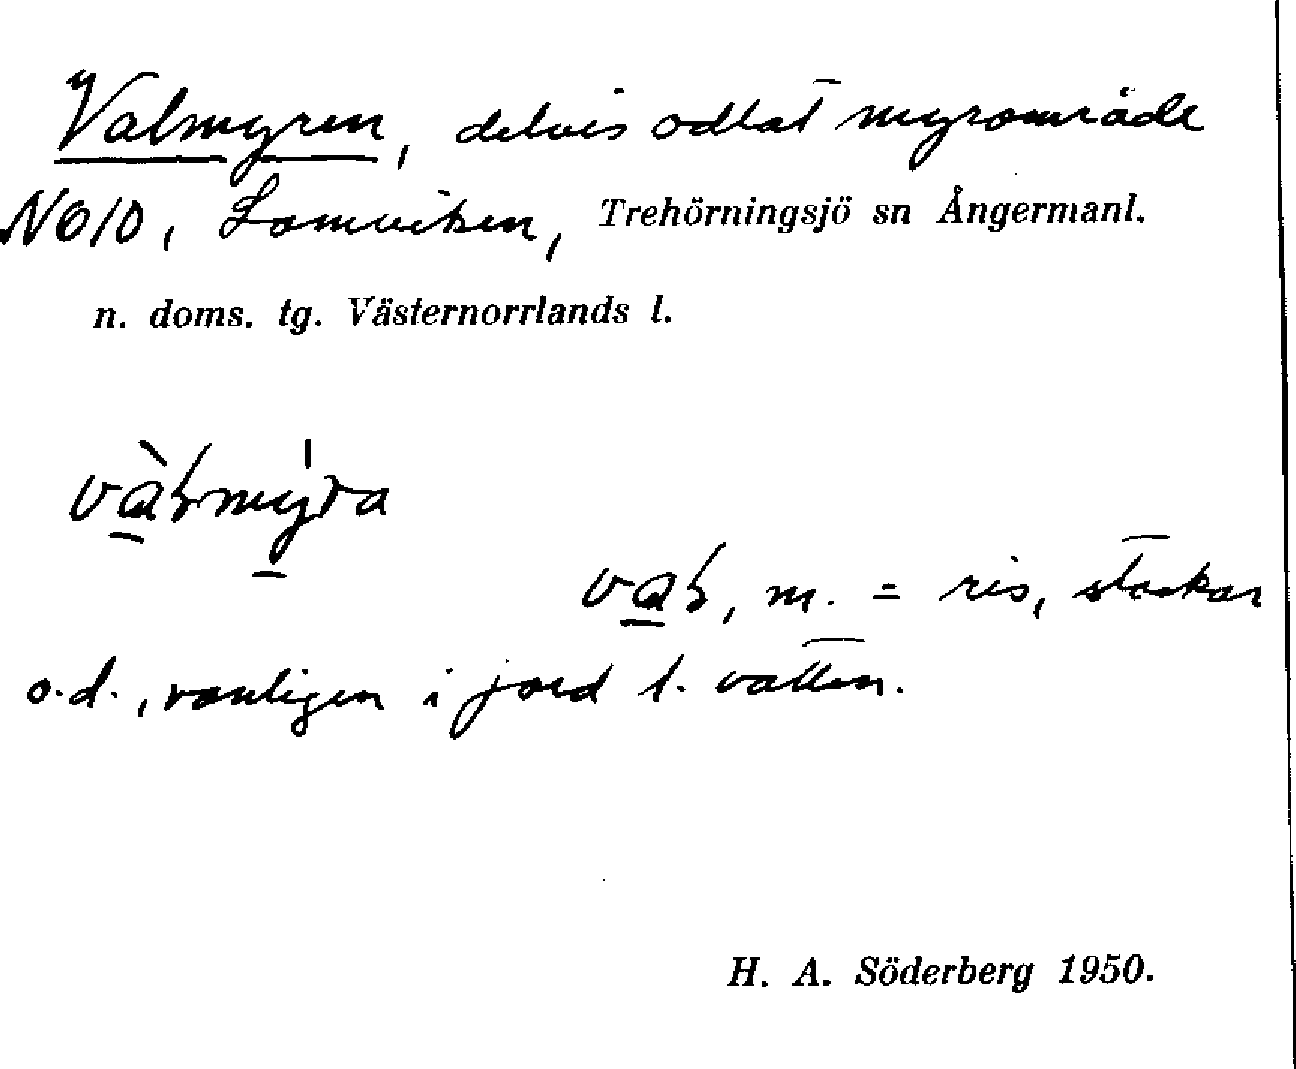 Valmyren, delvis odlat myrområde
NO/O, Lomviken, Trehörningsjö sn Ångermanl.
n. doms. tg. Västernorrlands l.
và̱ƚmý̱ra
va̱ƚ, m. = ris, stockar
o.d., vanligen i jord l. vatten.
H. A. Söderberg 1950.